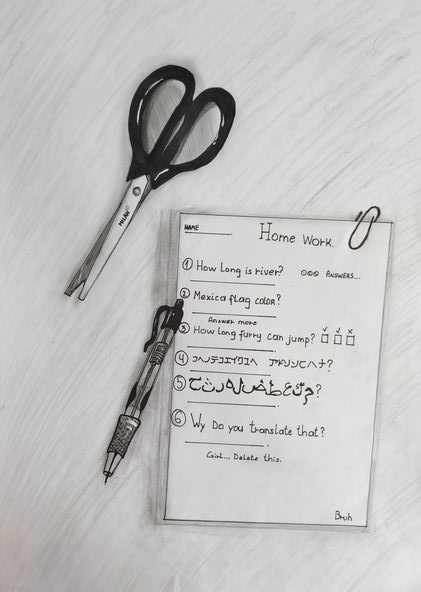 MILAN
NAME
Home Work.
1 How Long is river? ooo Answers...
2 Mexica flag color?
Answer more
3 How long furry can jump?
4
5
6 Wy Do you translate that?
Girl... Delete this.
Bruh